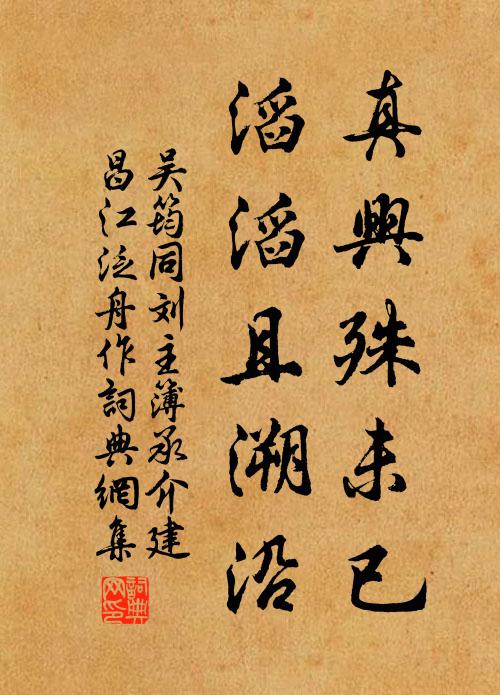 真興殊未已
滔滔且溯沿
吴筠同刘主簿承介建
昌江泛舟作詞典網集
詞典網印